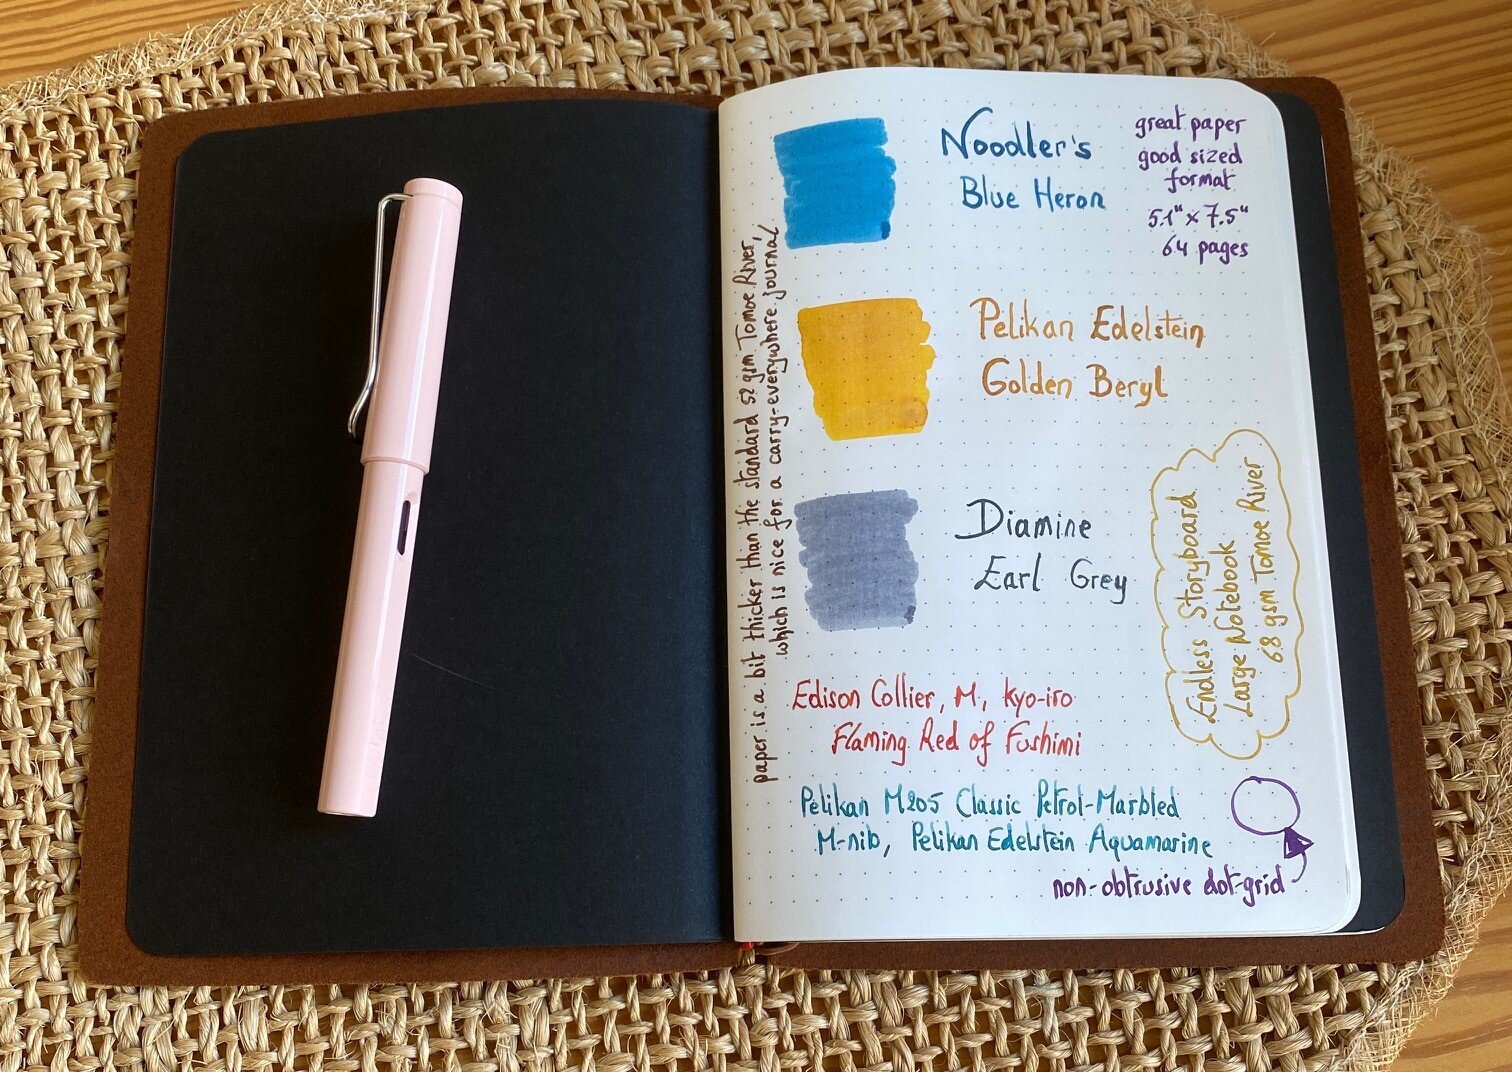 Noodler's
Blue Heron
great paper
good sized
format
5.1" x 7.5"
64 pages
paper is a bit thicker than the standard 52 gsm Tomoe River,
which is nice for a carry-everywhere journal
Pelikan Edelstein
Golden Beryl
Diamine
Earl Grey
Endless Storyboard
Large Notebook
68 gsm Tomoe River
Edison Collier, M, Kyo-iro
Flaming Red of Fushimi
Pelikan M205 Classic Petrol-Marbled
M-nib, Pelikan Edelstein Aquamarine
non-obtrusive dot-grid